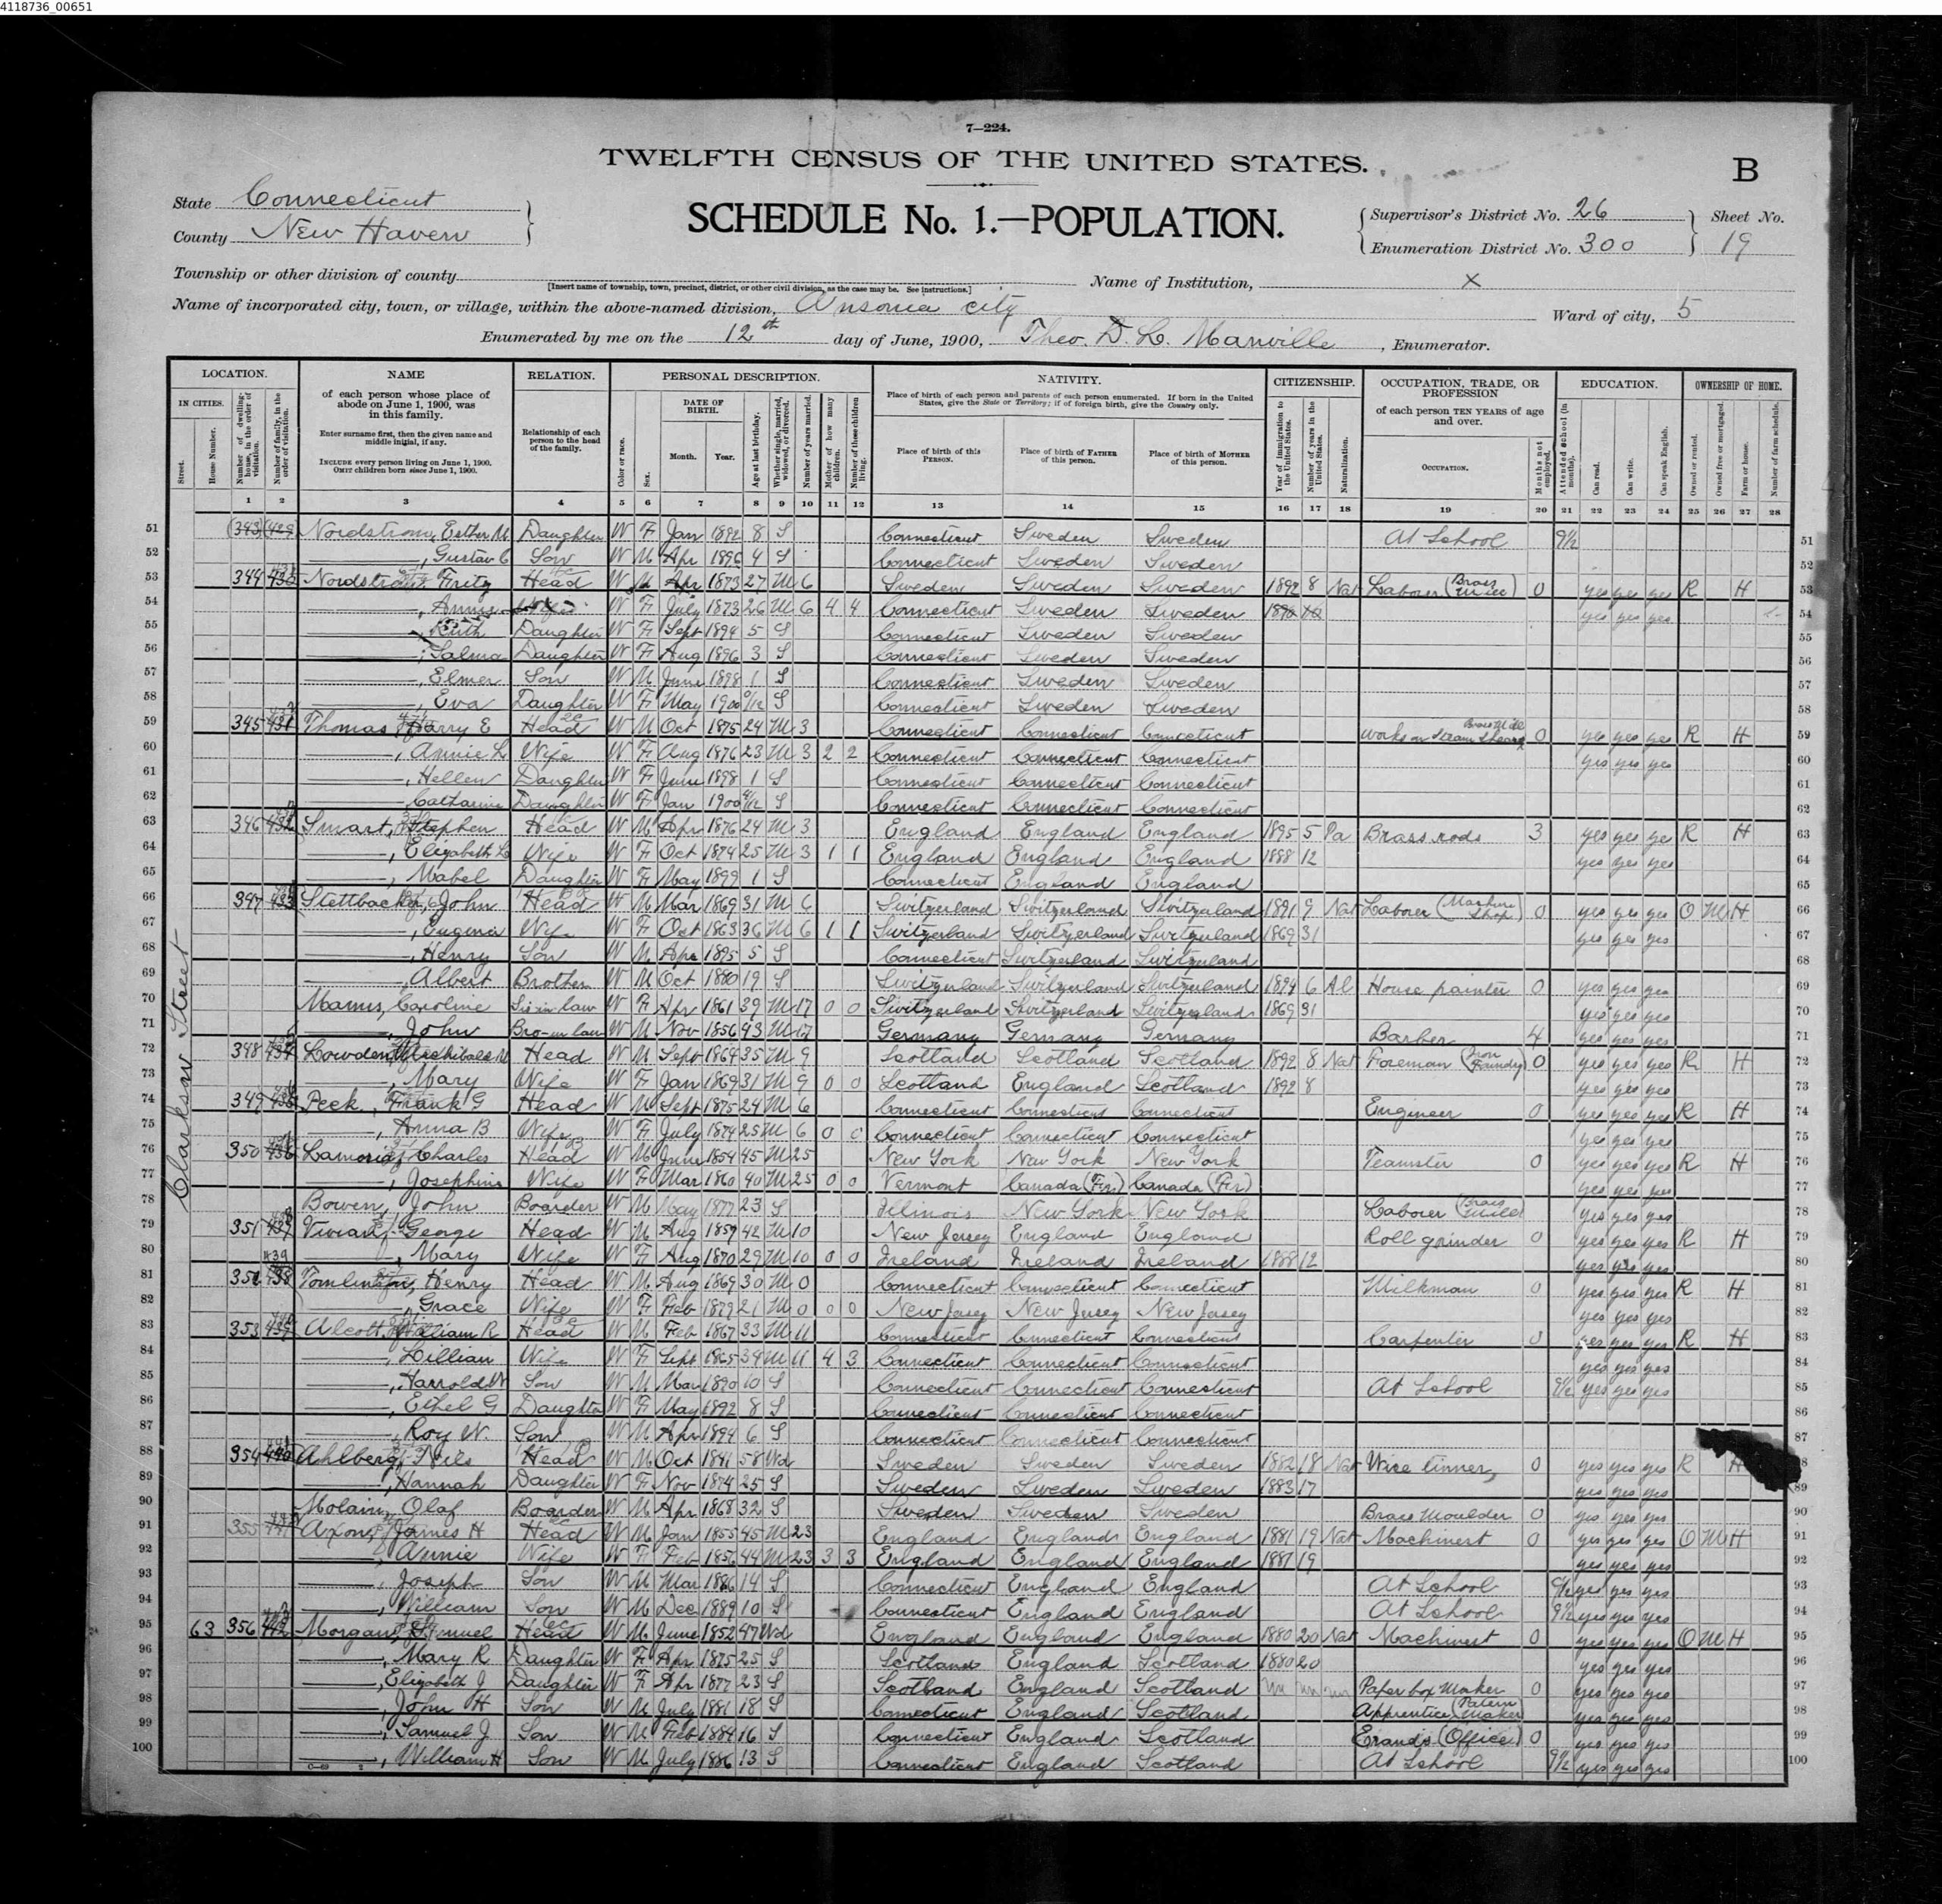 4118736_00651
7—224.
TWELFTH CENSUS OF THE UNITED STATES.
B
State Connecticut
County New Haven
SCHEDULE No. 1.—POPULATION.
Supervisor's District No. 26
Enumeration District No. 300
Sheet No. 19
Township or other division of county
[Insert name of township, town, precinct, district, or other civil division, as the case may be. See instructions.]
Name of Institution, X
Name of incorporated city, town, or village, within the above-named division, Ansonia city
Ward of city, 5
Enumerated by me on the 12th day of June, 1900, Theo. D. L. Manville, Enumerator.
LOCATION. NAME RELATION. PERSONAL DESCRIPTION. NATIVITY. CITIZENSHIP. OCCUPATION, TRADE, OR PROFESSION EDUCATION. OWNERSHIP OF HOME.
IN CITIES. Street. House Number. Number of dwelling-house, in the order of visitation. Number of family, in the order of visitation.
of each person whose place of abode on June 1, 1900, was in this family.
Enter surname first, then the given name and middle initial, if any.
INCLUDE every person living on June 1, 1900. OMIT children born since June 1, 1900.
Relationship of each person to the head of the family.
Color or race. Sex. DATE OF BIRTH. Month. Year. Age at last birthday. Whether single, married, widowed, or divorced. Number of years married. Mother of how many children. Number of these children living.
Place of birth of each person and parents of each person enumerated. If born in the United States, give the State or Territory; if of foreign birth, give the Country only.
Place of birth of this PERSON. Place of birth of FATHER of this person. Place of birth of MOTHER of this person.
Year of immigration to the United States. Number of years in the United States. Naturalization.
of each person TEN YEARS of age and over.
OCCUPATION. Months not employed.
Attended school (in months). Can read. Can write. Can speak English.
Owned or rented. Owned free or mortgaged. Farm or house. Number of farm schedule.
1 2 3 4 5 6 7 8 9 10 11 12 13 14 15 16 17 18 19 20 21 22 23 24 25 26 27 28
Clarkson Street
51 (343) (429) Nordstrom, Esther M. Daughter W F Jan 1892 8 S Connecticut Sweden Sweden At School 9½ 51
52 ——, Gustav C Son W M Apr 1896 4 S Connecticut Sweden Sweden 52
53 344 Nordstrom, Fritz Head W M Apr 1873 27 M 6 Sweden Sweden Sweden 1892 8 Nat Laborer (Brass Mill) 0 yes yes yes R H 53
54 ——, Annie Wife W F July 1873 26 M 6 4 4 Connecticut Sweden Sweden yes yes yes 54
55 ——, Ruth Daughter W F Sept 1894 5 S Connecticut Sweden Sweden 55
56 ——, Salma Daughter W F Aug 1896 3 S Connecticut Sweden Sweden 56
57 ——, Elmer Son W M June 1898 1 S Connecticut Sweden Sweden 57
58 ——, Eva Daughter W F May 1900 0/12 S Connecticut Sweden Sweden 58
59 345 431 Thomas, Harry E Head W M Oct 1875 24 M 3 Connecticut Connecticut Connecticut works on steam shears Brass Mill 0 yes yes yes R H 59
60 ——, Annie L Wife W F Aug 1876 23 M 3 2 2 Connecticut Connecticut Connecticut yes yes yes 60
61 ——, Hellen Daughter W F June 1898 1 S Connecticut Connecticut Connecticut 61
62 —— Catharine Daughter W F Jan 1900 4/12 S Connecticut Connecticut Connecticut 62
63 346 Smart, Stephen Head W M Apr 1876 24 M 3 England England England 1895 5 Pa Brass rods 3 yes yes ye R H 63
64 ——, Elizabeth L Wife W F Oct 1874 25 M 3 1 1 England England England 1888 12 yes yes yes 64
65 ——, Mabel Daughter W F May 1899 1 S Connecticut England England 65
66 347 433 Stettbacker, John Head W M Mar 1869 31 M 6 Switzerland Switzerland Switzerland 1891 9 Nat Laborer (Machine Shop) 0 yes yes yes O M H 66
67 ——, Eugenia Wife W F Oct 1863 36 M 6 1 1 Switzerland Switzerland Switzerland 1869 31 yes yes yes 67
68 ——, Henry Son W M Apr 1895 5 S Connecticut Switzerland Switzerland 68
69 ——, Albert Brother W M Oct 1880 19 S Switzerland Switzerland Switzerland 1894 6 Al House painter 0 yes yes yes 69
70 Manus, Caroline Sis in law W F Apr 1861 39 M 17 0 0 Switzerland Switzerland Switzerland 1869 31 yes yes yes 70
71 ——, John Bro-in law W M Nov 1856 43 M 17 Germany Germany Germany Barber 4 yes yes yes 71
72 348 434 Lowden, Archibald M Head W M Sept 1864 35 M 9 Scotland Scotland Scotland 1892 8 Nat Foreman (Iron Foundry) 0 yes yes yes R H 72
73 ——, Mary Wife W F Jan 1869 31 M 9 0 0 Scotland England Scotland 1892 8 yes yes yes 73
74 349 Peck, Frank G Head W M Sept 1875 24 M 6 Connecticut Connecticut Connecticut Engineer 0 yes yes yes R H 74
75 ——, Anna B Wife W F July 1874 25 M 6 0 0 Connecticut Connecticut Connecticut yes yes yes 75
76 350 436 Charles Head W M June 1854 45 M 25 New York New York New York Teamster 0 yes yes yes R H 76
77 ——, Josephine Wife W F Mar 1860 40 M 25 0 0 Vermont Canada (Fr.) Canada (Fr) yes yes yes 77
78 Bowen, John Boarder W M May 1877 23 S Illinois New York New York Laborer (Brass Mill) yes yes yes 78
79 351 437 Vivian, George Head W M Aug 1857 42 M 10 New Jersey England England Roll grinder 0 yes yes yes R H 79
80 ——, Mary Wife W F Aug 1870 29 M 10 0 0 Ireland Ireland Ireland 1888 12 yes yes yes 80
81 352 439 438 Tomlinson, Henry Head W M Aug 1869 30 M 0 Connecticut Connecticut Connecticut Milkman 0 yes yes yes R H 81
82 ——, Grace Wife W F Feb 1879 21 M 0 0 0 New Jersey New Jersey New Jersey yes yes yes 82
83 353 439 Alcott, William R Head W M Feb 1867 33 M 11 Connecticut Connecticut Connecticut Carpenter 0 yes yes yes R H 83
84 ——, Lillian Wife W F Sept 1865 34 M 11 4 3 Connecticut Connecticut Connecticut yes yes yes 84
85 ——, Harrold W Son W M Mar 1890 10 S Connecticut Connecticut Connecticut At School 9½ yes yes yes 85
86 ——, Ethel G Daughter W F May 1892 8 S Connecticut Connecticut Connecticut 86
87 ——, Roy W. Son W M Apr 1894 6 S Connecticut Connecticut Connecticut 87
88 354 440 Ahlberg, Nils Head W M Oct 1841 58 Wd Sweden Sweden Sweden 1882 18 Nat Wire tinner 0 yes yes yes R H
89 ——, Hannah Daughter W F Nov 1874 25 S Sweden Sweden Sweden 1883 17 yes yes yes 89
90 Olaf Boarder W M Apr 1868 32 S Sweden Sweden Sweden Brass Moulder 0 yes yes yes 90
91 355 Axon, James H Head W M Jan 1855 45 M 23 England England England 1881 19 Nat Machinest 0 yes yes yes O M H 91
92 ——, Annie Wife W F Feb 1856 44 M 23 3 3 England England England 1881 19 yes yes yes 92
93 ——, Joseph Son W M Mar 1886 14 S Connecticut England England At School 9½ yes yes yes 93
94 ——, William Son W M Dec 1889 10 S Connecticut England England At School 9½ yes yes yes 94
95 63 356 442 Morgan, Samuel Head W M June 1852 47 Wd England England England 1880 20 Nat Machinest 0 yes yes yes O M H 95
96 ——, Mary R Daughter W F Apr 1875 25 S Scotland England Scotland 1880 20 yes yes yes 96
97 ——, Elizabeth J Daughter W F Apr 1877 23 S Scotland England Scotland Un Un Un Paper box Maker 0 yes yes yes 97
98 ——, John H Son W M July 1881 18 S Connecticut England Scotland Apprentice (Patern Maker) yes yes yes 98
99 ——, Samuel J Son W M Feb 1884 16 S Connecticut England Scotland Erands (Office) 0 yes yes yes 99
100 ——, William H Son W M July 1886 13 S Connecticut England Scotland At School 9½ yes yes yes 100